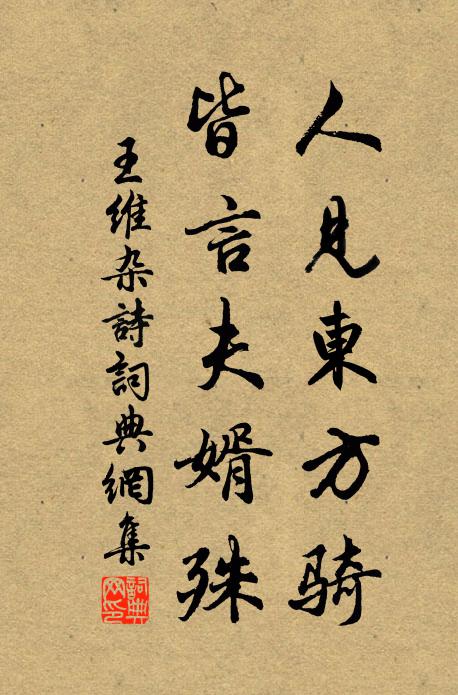 人見東方騎
皆言夫婿殊
王維杂詩詞典網集
詞典網印